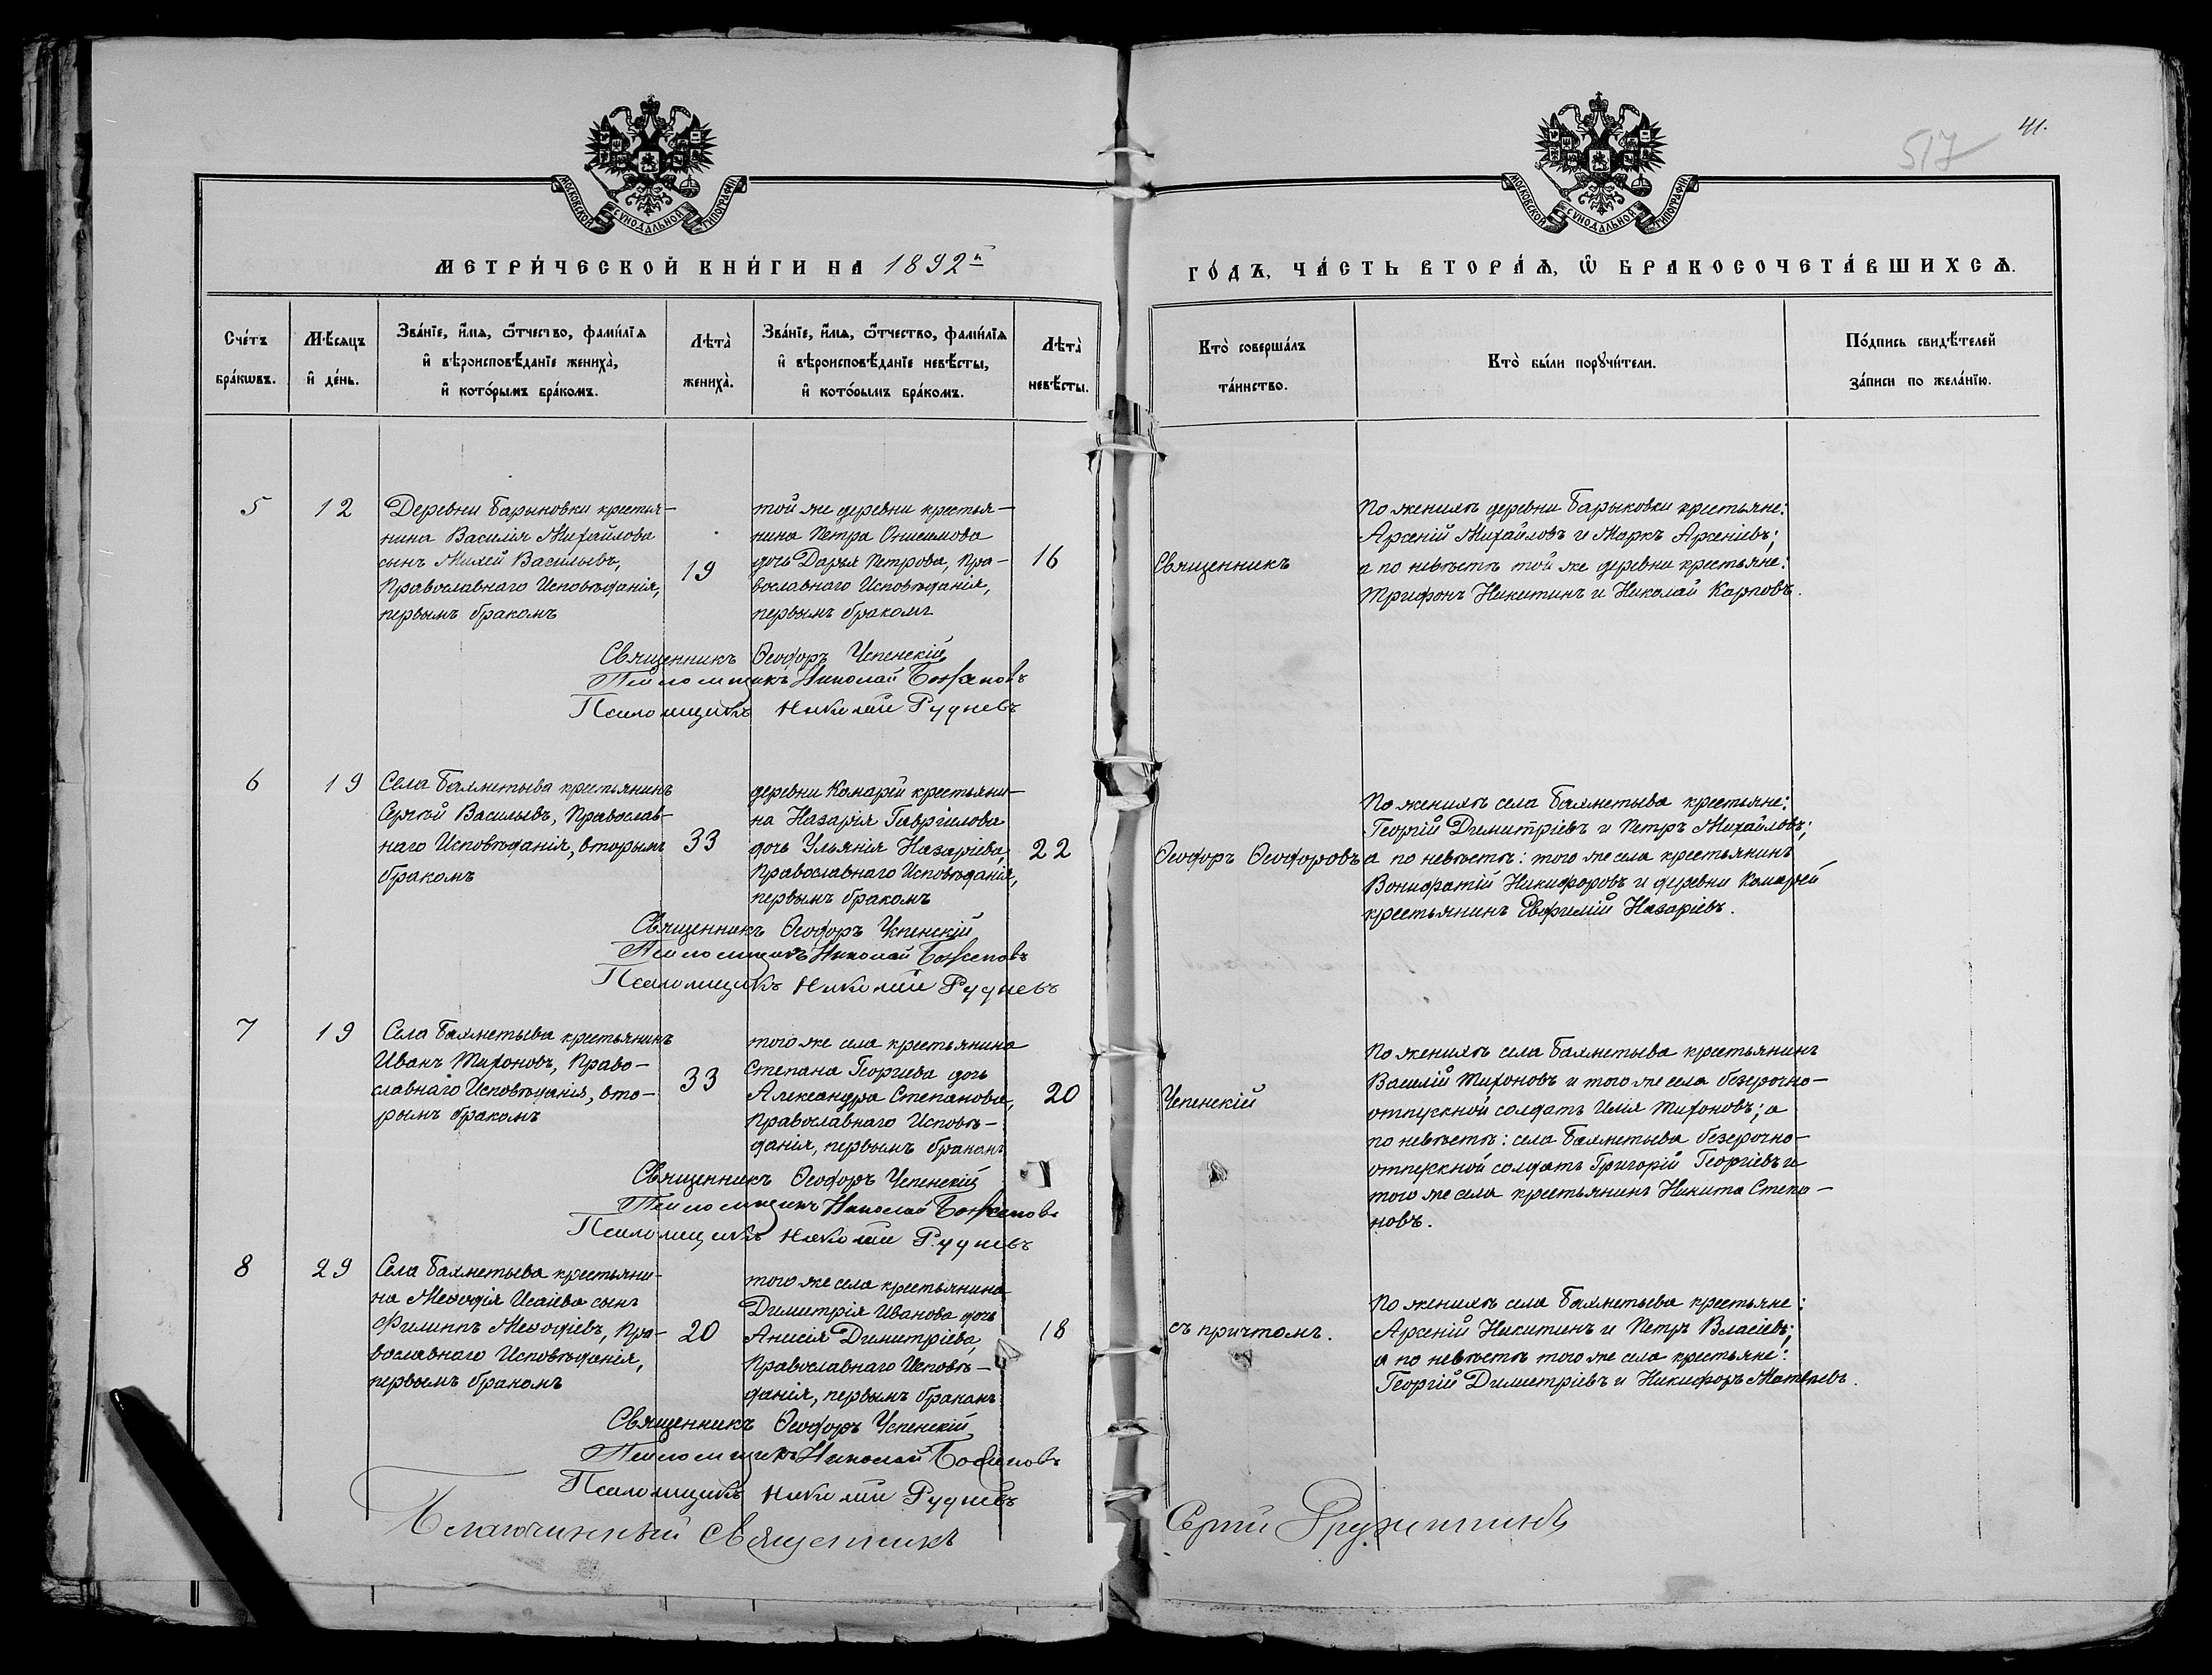 41.
517
МОСКОВСКОЙ СѴНОДАЛЬНОЙ ТИПОГРАФІИ
МОСКОВСКОЙ СѴНОДАЛЬНОЙ ТИПОГРАФІИ
МЕТРИ́ЧЕСКОЙ КНИ́ГИ НА 1892й
ГО́ДЪ, ЧА́СТЬ ВТОРА́Ѧ, Ѿ БРАКОСОЧЕТА́ВШИХСѦ.
Сче́тъ бра́кѡвъ.
Мѣ́сяцъ и҆ де́нь.
Зва́нїе, и҆́мѧ, ѻ҆́тчество, фами́лїѧ и҆ вѣроисповѣ́данїе жениха̀, и҆ кото́рымъ бра́комъ.
Лѣта̀ жениха̀.
Зва́нїе, и҆́мѧ, ѻ҆́тчество, фами́лїѧ и҆ вѣроисповѣ́данїе невѣ́сты, и҆ кото́рымъ бра́комъ.
Лѣта̀ невѣ́сты.
Кто̀ соверша́лъ та́инство.
Кто̀ бы́ли порꙋчи́тели.
По́дпись свидѣ́телей за́писи по жела́нїю.
5
12
Деревни Барыковки крестья-
нина Василія Михайлова
сынъ Михей Васильевъ,
Православнаго Исповѣданія,
первымъ бракомъ
19
той же деревни крестья-
нина Петра Онисимова
дочь Дарья Петрова, Пра-
вославнаго Исповѣданія,
первымъ бракомъ
16
Священникъ
По женихѣ деревни Барыковки крестьяне:
Арсеній Михайловъ и Маркъ Арсеніевъ;
а по невѣстѣ той же деревни крестьяне:
Трифонъ Никитинъ и Николай Карповъ.
Священникъ Ѳеодоръ Успенскій
Псаломщикъ Николай Божановъ
Псаломщикъ Николай Рудневъ
6
19
Села Бахметьева крестьянинъ
Сергѣй Васильевъ, Православ-
наго Исповѣданія, вторымъ
бракомъ
33
деревни Комарей крестьяни-
на Назарія Гавріилова
дочь Ульянія Назаріева,
Православнаго Исповѣданія,
первымъ бракомъ
22
Ѳеодоръ Ѳеодоровъ
По женихѣ села Бахметьева крестьяне:
Георгій Димитріевъ и Петръ Михайловъ;
а по невѣстѣ: того же села крестьянинъ
Вонифатій Никифоровъ и деревни Комарей
крестьянинъ Евфимій Назаріевъ.
Священникъ Ѳеодоръ Успенскій
Псаломщикъ Николай Божановъ
Псаломщикъ Николай Рудневъ
7
19
Села Бахметьева крестьянинъ
Иванъ Тихоновъ, Право-
славнаго Исповѣданія, вто-
рымъ бракомъ
33
того же села крестьянина
Степана Георгіева дочь
Александра Степанова,
Православнаго Исповѣ-
данія, первымъ бракомъ
20
Успенскій
По женихѣ села Бахметьева крестьянинъ
Василій Тихоновъ и того же села безсрочно-
отпускной солдатъ Илія Тихоновъ; а
по невѣстѣ: села Бахметьева безсрочно-
отпускной солдатъ Григорій Георгіевъ и
того же села крестьянинъ Никита Степа-
новъ.
Священникъ Ѳеодоръ Успенскій
Псаломщикъ Николай Божановъ
Псаломщикъ Николай Рудневъ
8
29
Села Бахметьева крестьяни-
на Меѳодія Исаіева сынъ
Филиппъ Меѳодіевъ, Пра-
вославнаго Исповѣданія,
первымъ бракомъ
20
того же села крестьянина
Димитрія Иванова дочь
Анисія Димитріева,
Православнаго Исповѣ-
данія, первымъ бракомъ
18
съ причтомъ.
По женихѣ села Бахметьева крестьяне:
Арсеній Никитинъ и Петръ Власіевъ;
а по невѣстѣ того же села крестьяне:
Георгій Димитріевъ и Никифоръ Матвѣевъ.
Священникъ Ѳеодоръ Успенскій
Псаломщикъ Николай Божановъ
Псаломщикъ Николай Рудневъ
Благочинный Священникъ Сергій Дружининъ